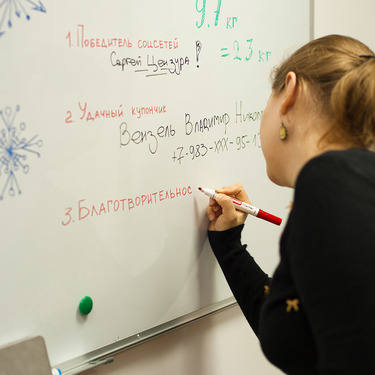 9.7 кг
= 2.3 кг
1. Победитель соцсетей
Сергей Цензура!
2. Удачный купончик
Вензель Владимир
+7-983-XXX-95-1
3. Благотворительнос